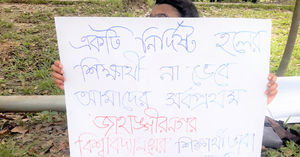 একটি নির্দিষ্ট হলের
শিক্ষার্থী না ভেবে
আমাদের সর্বপ্রথম
জাহাঙ্গীরনগর
বিশ্ববিদ্যালয়ের শিক্ষার্থী ভাবা